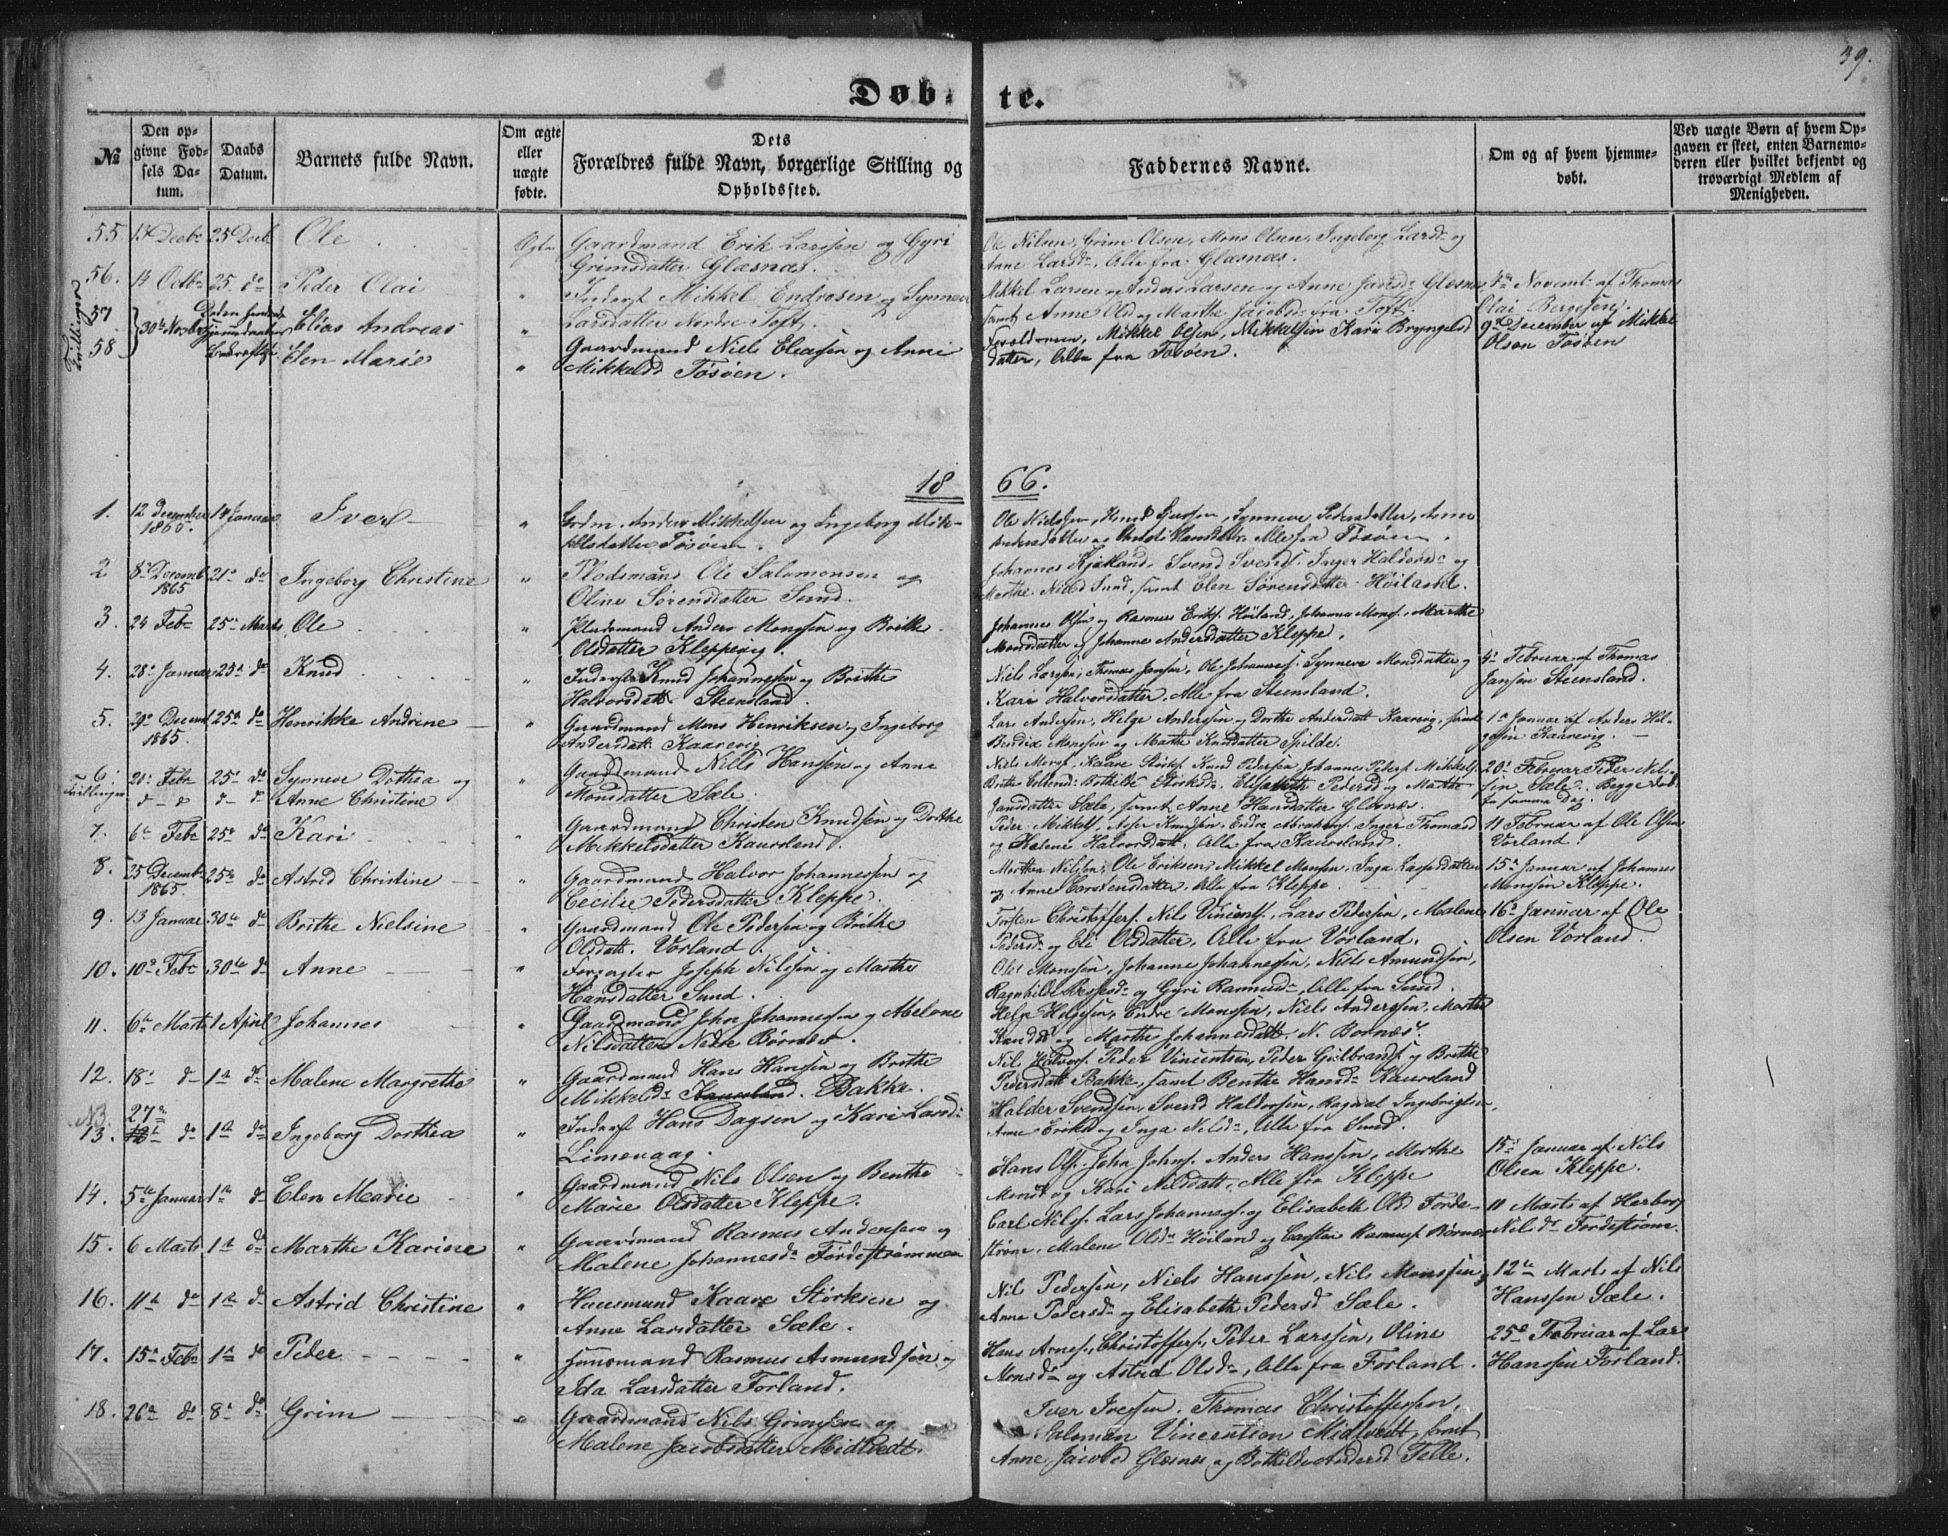 39.
Døbte.
№
Den opgivne Fødsels Datum.
Daabs Datum.
Barnets fulde Navn.
Om ægte eller uægte fødte.
Dets Forældres fulde Navn, borgerlige Stilling og Opholdssted.
Faddernes Navne.
Om og af hvem hjemmedøbt.
Ved uægte Børn af hvem Opgaven er skeet, enten Barnemoderen eller hvilket bekjendt og troværdigt Medlem af Menigheden.
55 25 Decb Ole
Gaardmand Erik Larssen og Gyri
Grimsdatter Glæsnæs.
Ole Nilsen, Grim Olsen, Mons Olsen, Ingeborg Larsd og
Anne Larsd, Alle fra Glæsnæs.
56. 14 Octb 25 do Peder Olai
Inderst Mikkel Endresen og Synneve
Larsdatter Nordre Toft.
Mikkel Larsen og Anders Larsen og Anne Jansd Glæsnæs
samt Anne Olsd og Marthe Jacobsd fra Toft.
4de Novemb af Thomas
Olai
Tvillinger
57 30te Novbr Elias Andreas
58 Elen Marie
Gaardmand Niels Eliassen og Anne
Mikkelsd Tøsøen.
Forældrene, Mikkel Olsen, Mikkelsen Kari Bryngelsd
datter, Alle fra Tøsøen.
9de December af Mikkel
Olsen Tøsøen
1866.
1. 12 December 1865. 14 Januar Iver
Anders Mikkelsen og Ingeborg Mik-
kelsdatter Tøsøen.
Ole Nielssen, Synneve Pedersdatter, Anne
Andersdatter og Alle fra Tøsøen.
2 8de Decemb 1865 21 do Ingeborg Christine
Pladsmand Ole Salomonsen og
Oline Sørensdatter Sund.
Johannes Svend Svends. Inger Haldorsd og
Marthe Nilsd Sund, samt Elen Sørensdatter Høiland.
3. 24 Feb 25 Marts Ole
Pladsmand Anders Monssen og Brithe
Olsdatter Kleppevig.
Johannes Olsen og Rasmus Eriks. Høiland, Johannes Mons. Marthe
Monsdatter og Johanne Andersdatter Kleppe.
4. 28 Januar 25 do Knud
Inderst Knud Johannessen og Brithe
Halvorsdatt Steensland.
Niels Larsen, Thomas Jansen, Ole Johannes. Synneve Monsdatter og
Kari Halvorsdatter, Alle fra Steensland.
4 Februar af Thomas
Jansen Steensland.
5. 29 Decemb 1865. 25 do Henrikke Andrine
Gaardmand Mons Henriksen og Ingeborg
Andersdatt. Kaarevig
Lars Andersen, Helge Andersen og Dorthe Andersdatt Kaarevig, samt
Bendix Monssen og Marthe Knudsdatter Spilde.
1 Januar af Anders Hel-
gesen Kaarevig.
6. Tvillinger 21 Feb 25 do Synneve Dothea og
Anne Christine
Gaardmand Niels Hanssen og Anne
Monsdatter Sæle.
Niels Mons. Kaare Störks. Knud Pedersen, Johannes Peders. Mikkels.
Elisabeth Pedersd og Marthe
Jansdatter Sæle, samt Anne Hansdatter Glæsnæs.
20 Februar Peder Nil-
sen Sæle. Begge døb-
te samme Dag.
7. 6te Feb 25 do Kari
Gaardmand Christen Knudsen og Dorthe
Mikkelsdatter Kausland.
Peder Mikkels. Endre Abrahams. Inger Thomasd
og Malene Halvorsdatt. Alle fra Kausland.
11 Februar af Ole Olsen
Vorland.
8. 25 Decemb 1865 25de do Astrid Christine
Gaardmand Halvor Johannessen og
Cecilie Pedersdatter Kleppe.
Morthen Nilsen, Ole Eriksen, Mikkel Monsen, Inga Kaspersdatter
og Anne Carstensdatter. Alle fra Kleppe.
15 Januar af Johannes
Monssen Kleppe.
9. 13 Januar 30te do Brithe Nielsine
Gaardmand Ole Pedersen og Brithe
Olsdatt. Vorland
Torsten Christoffers. Nils Vincents. Lars Pedersen, Malene
Pedersd og Eli Olsdatter. Alle fra Vorland.
16 Januar af Ole
Olsen Vorland.
10. 10 Feb 30te do Anne
Forpagter Joseph Nilssen og Marthe
Hansdatter Sund.
Ole Monssen, Johanne Johannessen, Niels Amundsen,
Ragnhilde og Gyri Rasmusd, Alle fra Sund.
11. 6te Marts 1 April Johannes
Gaardmand John Johannessen og Malene
Nilsdatter Nedre Børnæs.
Helge Helgesen, Endre Monssen, Niels Anderssen, Marthe
Knudsd og Marthe Johannesdatt. N. Bornæs.
12. 18 do 1te do Malene Margrethe
Gaardmand Hans Hanssen og Brithe
Mikkelsd Kausland. Bakke.
Nils Halvors. Peder Vincentsen, Peder Gulbrands. og Brithe
Pedersdatt Bakke, samt Benthe Hansd Kausland
13. 27 do 1te do Ingeborg Dorthea
Inderst Hans Dagsen og Kari Larsd
Limevaag.
Haldor Svendsen, Svend Haldorsen, Ragnval Ingebrigtsen,
Anne Eriksd og Inga Nilsd, Alle fra Sund.
14. 5te Januar 1te do Elen Marie
Gaardmand Nils Olsen og Benthe
Marie Olsdatter Kleppe.
Hans Ols. John Johns. Anders Hanssen, Marthe
Monsd og Kari Nilsdatt. Alle fra Kleppe
15 Januar af Nils
Olsen Kleppe.
15. 6 Marts 1te do Marthe Karine
Gaardmand Rasmus Andersen og
Malene Johannesd Førdestrømmen
Carl Nils. Lars Johannes. og Elisabeth Olsd Førde-
strøm. Malene Olsd Høiland og Carsten Rasmus. Børnæs
11 Marts af Herborg
Nilsd. Førdestrøm.
16. 11te do 1te do Astrid Christine
Huusmand Kaare Störksen og
Anne Larsdatter Sæle.
Nils Pedersen, Niels Hanssen, Nils Monssen,
Anne Pedersd og Elisabeth Pedersd Sæle.
12te Marts af Nils
Hanssen Sæle.
17. 15 Feb 1te do Peder
Huusmand Rasmus Asmundsen og
Ida Larsdatter Forland.
Hans Arnes. Christoffers. Peder Larssen, Oline
Monsd og Astrid Olsd, Alle fra Forland.
25 Februar af Lars
Hanssen Forland.
18. 26 do 8 do Grim
Gaardmand Nils Grimsen og
Malene Jacobsdatter Midtvedt.
Iver Iversen, Thomas Christoffersen,
Salomon Vincentsen Midtvedt, samt
Anne Jacobsd Glæsnæs og Bothilde Andersd Telle.